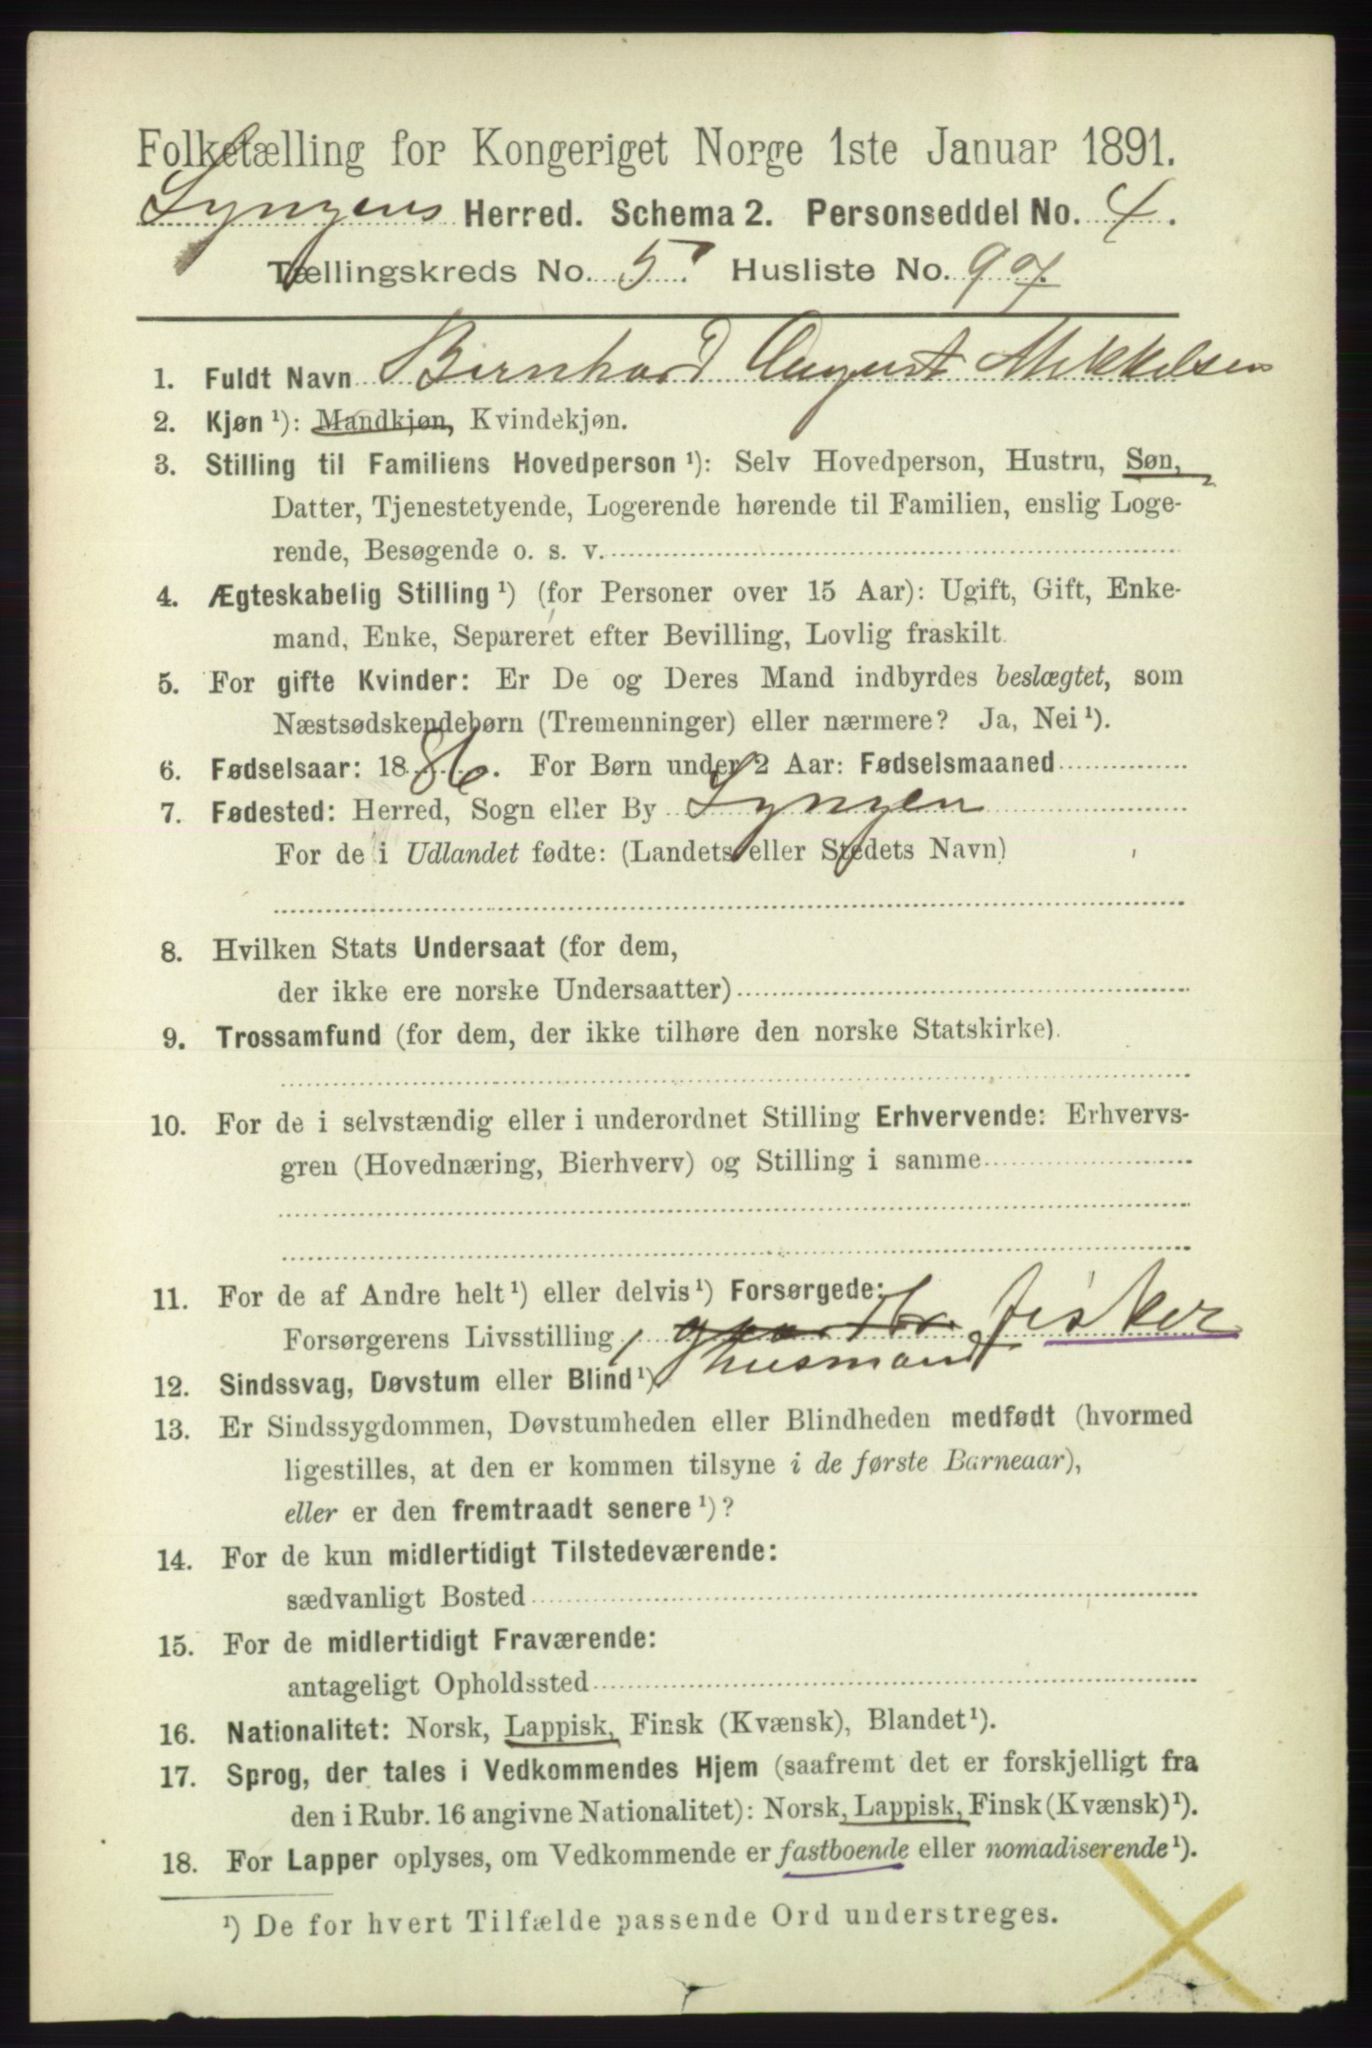 Folketælling for Kongeriget Norge 1ste Januar 1891.
Lyngens Herred. Schema 2. Personseddel No. 4.
Tællingskreds No. 5. Husliste No. 97.
1. Fuldt Navn Bernhard August Mikkelsen
2. Kjøn ¹): Mandkjøn, Kvindekjøn.
3. Stilling til Familiens Hovedperson ¹): Selv Hovedperson, Hustru, Søn,
Datter, Tjenestetyende, Logerende hørende til Familien, enslig Loge-
rende, Besøgende o. s. v.
4. Ægteskabelig Stilling ¹) (for Personer over 15 Aar): Ugift, Gift, Enke-
mand, Enke, Separeret efter Bevilling, Lovlig fraskilt.
5. For gifte Kvinder: Er De og Deres Mand indbyrdes beslægtet, som
Næstsødskendebørn (Tremenninger) eller nærmere? Ja, Nei ¹).
6. Fødselsaar: 1886. For Børn under 2 Aar: Fødselsmaaned
7. Fødested: Herred, Sogn eller By Lyngen
For de i Udlandet fødte: (Landets eller Stedets Navn)
8. Hvilken Stats Undersaat (for dem,
der ikke ere norske Undersaatter)
9. Trossamfund (for dem, der ikke tilhøre den norske Statskirke).
10. For de i selvstændig eller i underordnet Stilling Erhvervende: Erhvervs-
gren (Hovednæring, Bierhverv) og Stilling i samme
11. For de af Andre helt ¹) eller delvis ¹) Forsørgede:
Forsørgerens Livsstilling, fisker
husmand
12. Sindssvag, Døvstum eller Blind ¹)
13. Er Sindssygdommen, Døvstumheden eller Blindheden medfødt (hvormed
ligestilles, at den er kommen tilsyne i de første Barneaar),
eller er den fremtraadt senere ¹)?
14. For de kun midlertidigt Tilstedeværende:
sædvanligt Bosted
15. For de midlertidigt Fraværende:
antageligt Opholdssted
16. Nationalitet: Norsk, Lappisk, Finsk (Kvænsk), Blandet ¹).
17. Sprog, der tales i Vedkommendes Hjem (saafremt det er forskjelligt fra
den i Rubr. 16 angivne Nationalitet): Norsk, Lappisk, Finsk (Kvænsk) ¹).
18. For Lapper oplyses, om Vedkommende er fastboende eller nomadiserende ¹).
¹) De for hvert Tilfælde passende Ord understreges.